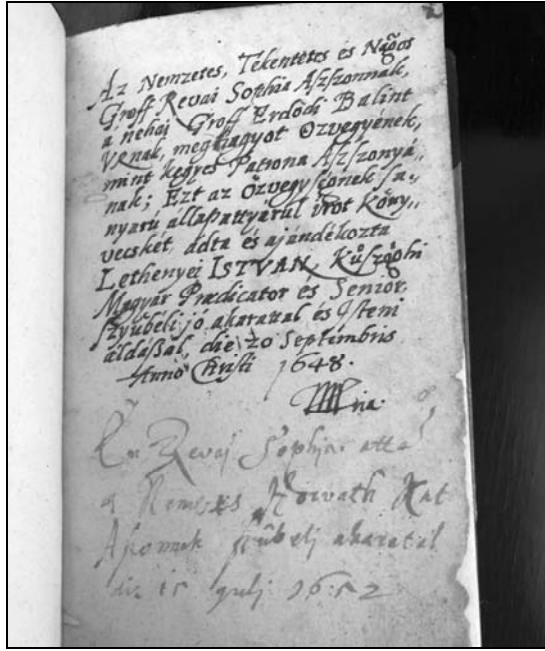 Az Nemzetes, Tekentetes és Nãgos
Groff Revai Sophia Aſzſzonnak,
a néhai Groff Erdődi Balint
VRnak, meghagyot Ozvegyének,
mint kegyes Patrona Aſzſzonyá„
nak; Ezt az özvegyſégnek ſa„
nyarú állapattyarul irot köny„
vecskét, adta és ajándékozta
Lethenyei ISTVAN, Kűſzőghi
Magyar Prædicator és Senior,
ſzyűbéli jó akarattal és Iſteni
áldáſſal, die 20 Septembris
Anno Chriſti 1648.
Mria.
En Revaj Sophia attã
a Nemzes Horvath Kat
Aſzonnak ſzűbelj akaratal
die 15 Julj 1652